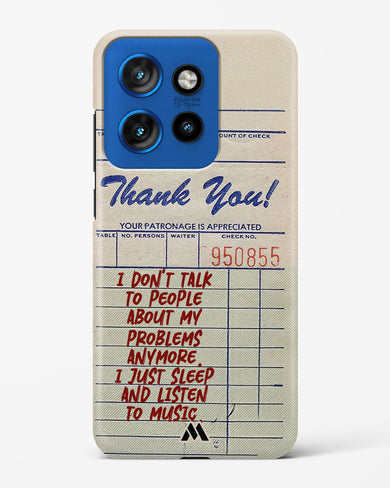 OUNT OF CHECK
Thank You!
YOUR PATRONAGE IS APPRECIATED
TABLE NO. PERSONS WAITER CHECK NO.
950855
I DON'T TALK
TO PEOPLE
ABOUT MY
PROBLEMS
ANYMORE.
I JUST SLEEP
AND LISTEN
TO MUSIC